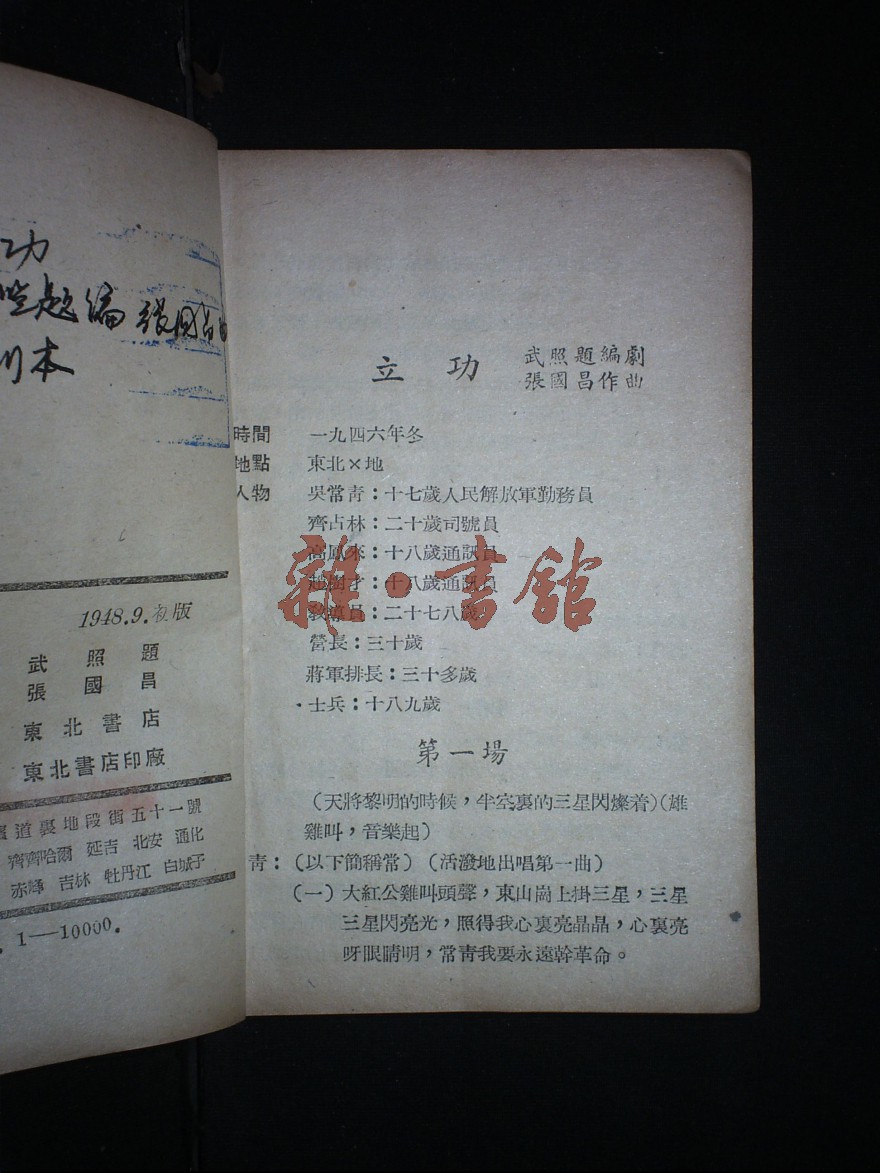 功
題編 張國昌
本
1948.9.初版
武照題
張國昌
東北書店
東北書店印廠
道裏地段街五十一號
齊齊哈爾 延吉 北安 通化
赤峰 吉林 牡丹江 白城子
1—10000.
立功
武照題編劇
張國昌作曲
時間 一九四六年冬
地點 東北×地
人物 吳常青：十七歲人民解放軍勤務員
齊占林：二十歲司號員
高鳳來：十八歲通訊員
趙樹才：十八歲通訊員
教導員：二十七八歲
營長：三十歲
蔣軍排長：三十多歲
士兵：十八九歲
雜·書館
第一場
（天將黎明的時候，半空裏的三星閃爍着）（雄
雞叫，音樂起）
青：（以下簡稱常）（活潑地出唱第一曲）
（一）大紅公雞叫頭聲，東山崗上掛三星，三星
三星閃亮光，照得我心裏亮晶晶，心裏亮
呀眼睛明，常青我要永遠幹革命。